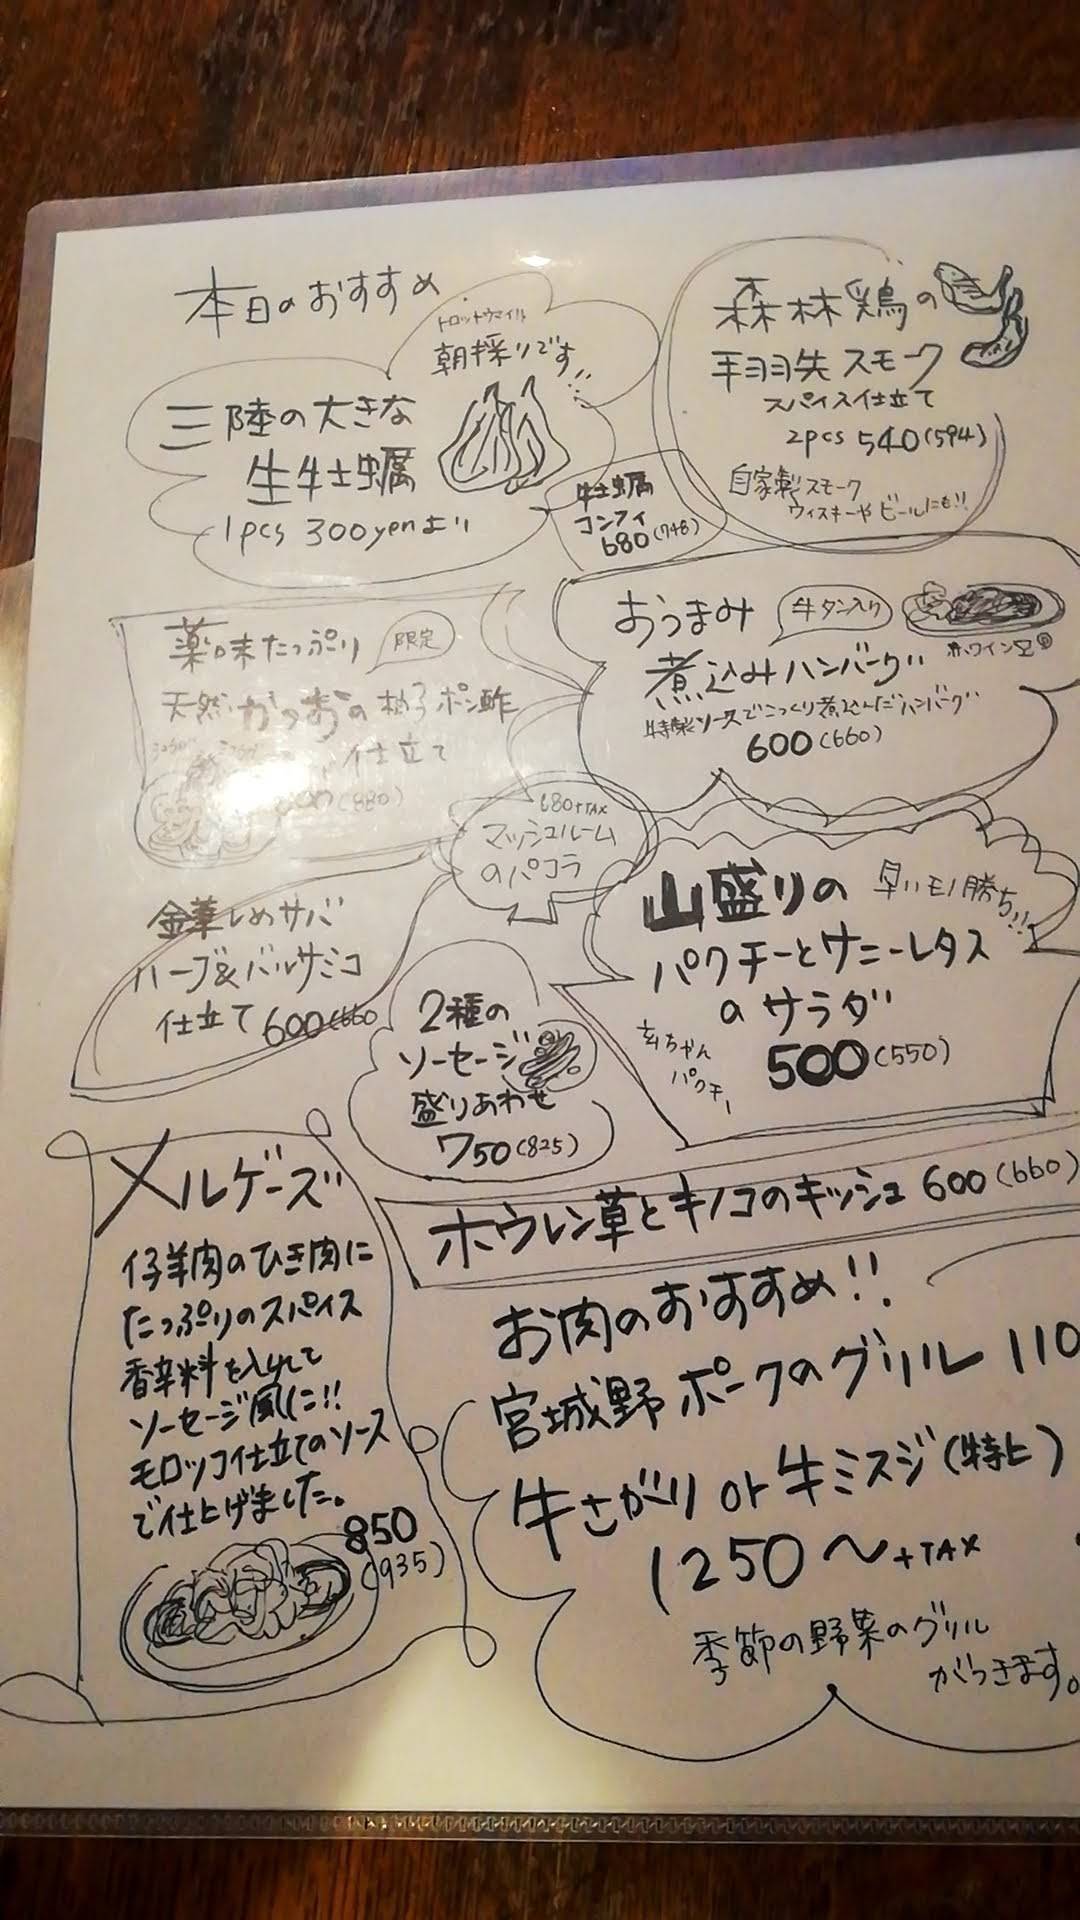 本日のおすすめ
トロットウマイル
朝採りです!!
三陸の大きな
生牡蠣
1pcs 300yenより
牡蠣
コンフィ
680(748)
森林鶏の
手羽先スモーク
スパイス仕立て
2pcs 540(594)
自家製スモーク
ウィスキーやビールにも!!
薬味たっぷり
限定
天然かつおの柚子ポン酢
仕立て
(880)
おつまみ
牛タン入り
煮込みハンバーグ
赤ワイン
特製ソースでこっくり煮込んだハンバーグ
600(660)
680+TAX
マッシュルーム
のパコラ
金華しめサバ
ハーブ&バルサミコ
仕立て 600(660
2種の
ソーセージ
盛りあわせ
750(825)
山盛りの
早いモノ勝ち!!
パクチーとサニーレタス
のサラダ
500(550)
ちゃん
パクチー
メルゲーズ
仔羊肉のひき肉に
たっぷりのスパイス
香辛料を入れて
ソーセージ風に!!
モロッコ仕立てのソース
で仕上げました。
850
(935)
ホウレン草とキノコのキッシュ 600(660)
お肉のおすすめ!!
宮城野ポークのグリル 110
牛さがり or 牛ミスジ(特上)
1250〜+TAX
季節の野菜のグリル
がつきます。